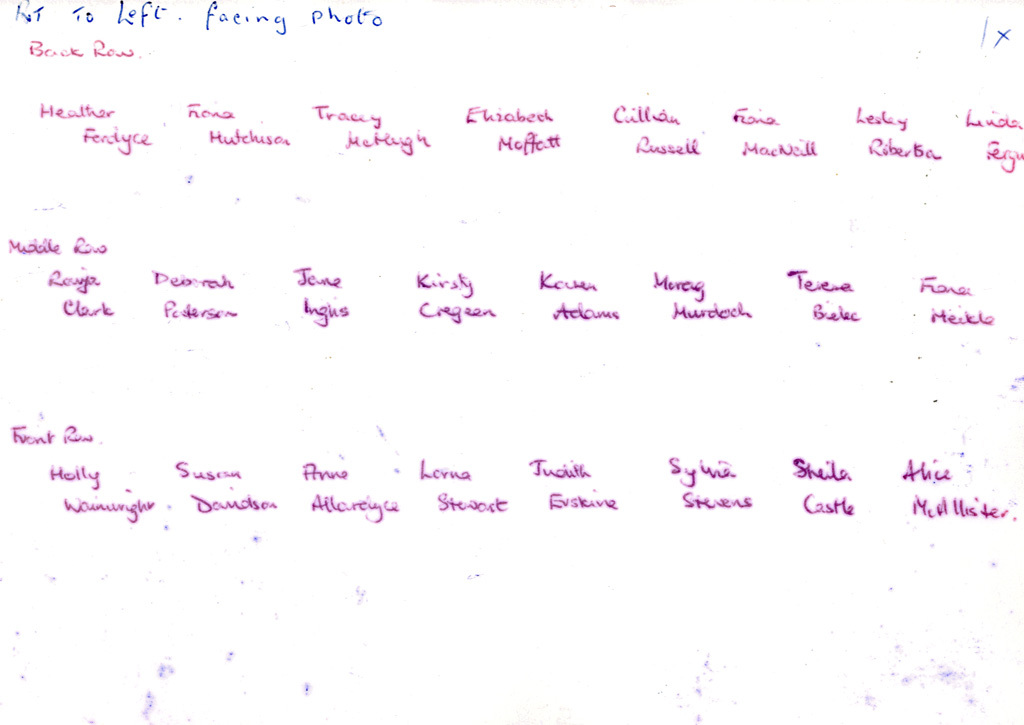 Rt To Left. facing photo
1x
Back Row.
Heather Fiona Tracey Elizabeth Gillian Fiona Lesley Linda
Ferdyce Hutchison McHugh Moffatt Russell MacNeill Robertson Fergu
Middle Row
Deborah Jane Kirsty Karen Morag Teresa Fiona
Clark Paterson Inglis Cregeen Adams Murdoch Bielec Meikle
Front Row.
Holly Susan Anne Lorna Judith Sylvia Sheila Alice
Wainwright Davidson Allardyce Stewart Erskine Stevens Castle McAllister.